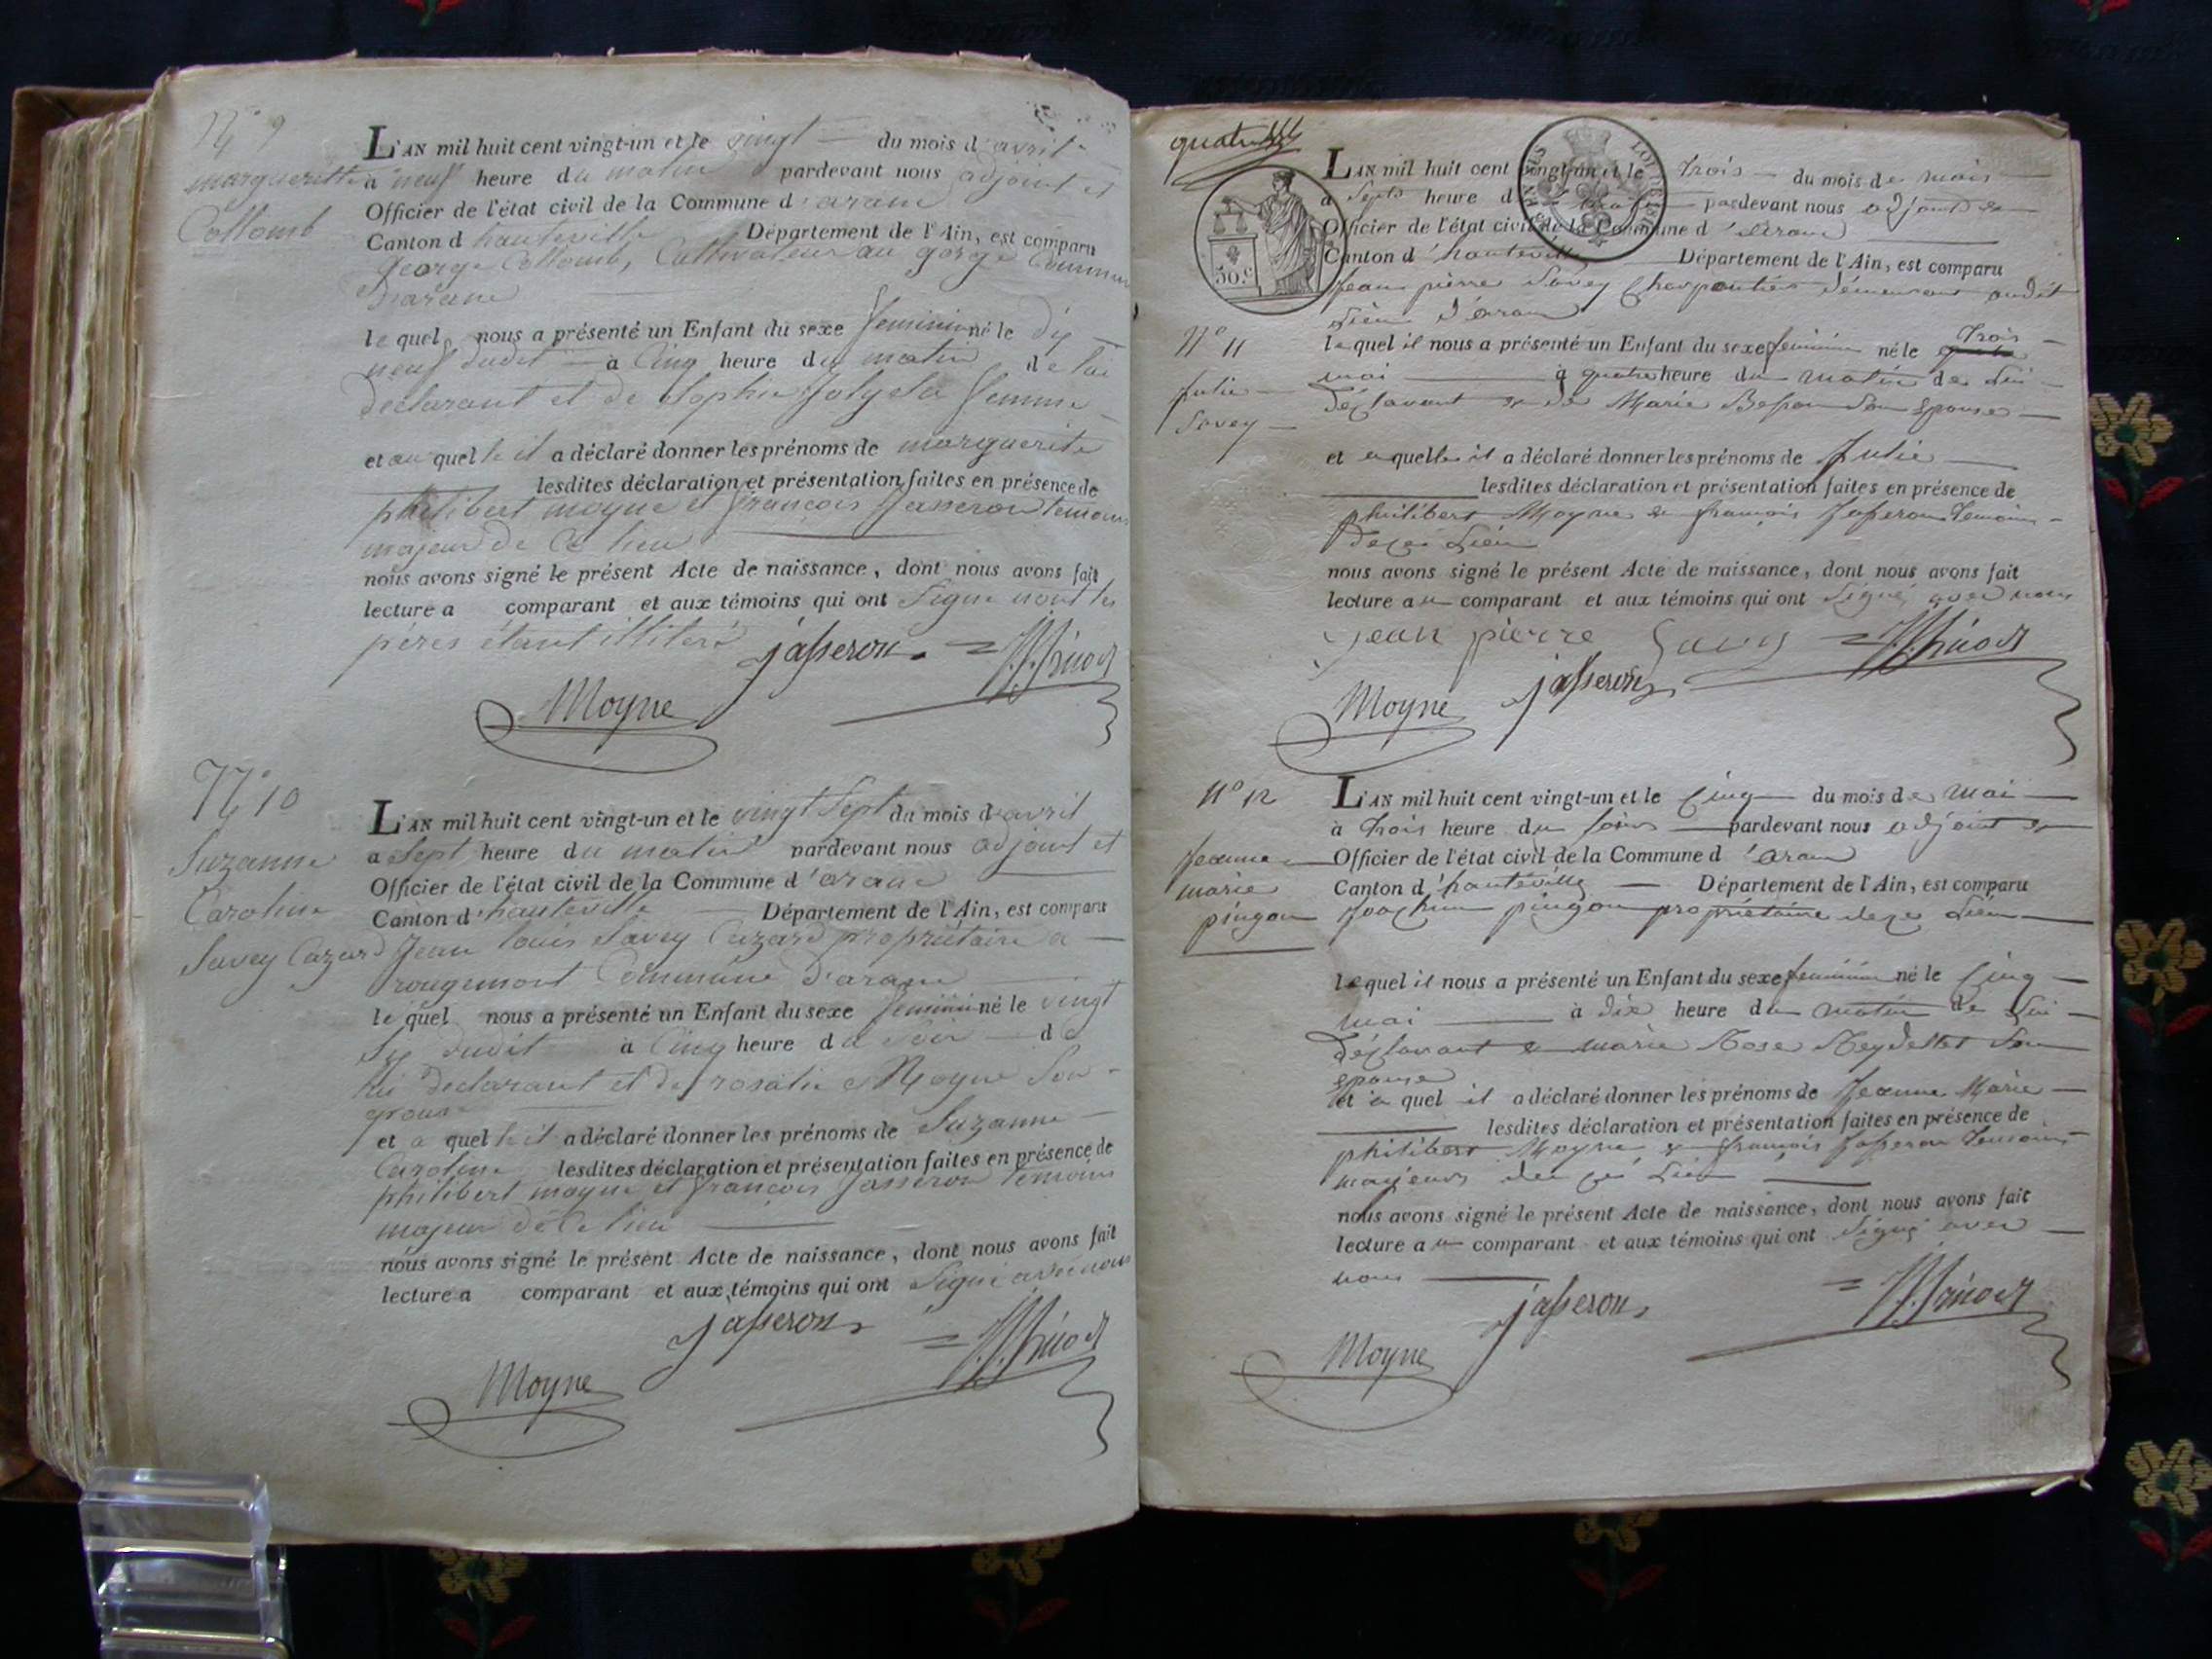 N° 9
margueritte
Collomb
L'AN mil huit cent vingt-un et le vingt du mois d'avril
a neuf heure du matin pardevant nous adjoint et
Officier de l'état civil de la Commune d'arane
Canton d'hauteville Département de l'Ain, est comparu
george Collomb, Cultivateur au gorge Commune
d'arane
le quel nous a présenté un Enfant du sexe feminin né le dix
neuf dudit à Cinq heure du matin de lui
declarant et de Sophie Joly Sa femme
et au quel le il a déclaré donner les prénoms de marguerite
lesdites déclaration et présentation faites en présence de
philibert moyne et françois Jasseron temoins
majeur de Ce lieu
nous avons signé le présent Acte de naissance, dont nous avons fait
lecture a comparant et aux témoins qui ont Signé non les
péres étant illiteré
jasseron
Moyne
N° 10
Suzanne
Caroline
Savey Cazard
L'AN mil huit cent vingt-un et le vingt Sept du mois d'avril
a Sept heure du matin pardevant nous adjoint et
Officier de l'état civil de la Commune d'arane
Canton d'hauteville Département de l'Ain, est comparu
Jean louis Savey Cazard propriétaire a
rougemont Commune d'arane
le quel nous a présenté un Enfant du sexe feminin né le vingt
Six dudit à Cinq heure du Soir de
lui declarant et de rosalie Moyne Son
epouse
et a quel le il a déclaré donner les prénoms de Suzanne
Caroline lesdites déclaration et présentation faites en présence de
philibert moyne et françois Jasseron temoins
majeur de Ce lieu
nous avons signé le présent Acte de naissance, dont nous avons fait
lecture a comparant et aux témoins qui ont Signé avec nous
jasseron
Moyne
30.c
N° 11
Julie
Savey
L'AN mil huit cent vingt-un et le trois du mois de mai
a Sept heure d pardevant nous adjoint et
Officier de l'état civil de la Commune d'arane
Canton d'hauteville Département de l'Ain, est comparu
Jean pierre Savey Charpentier démeurant audit
Lieu d'aran
le quel il nous a présenté un Enfant du sexe feminin né le trois
mai à quatre heure du matin de Lui
déclarant et de Marie Besson Son Epouse
et a quelle il a déclaré donner les prénoms de Julie
lesdites déclaration et présentation faites en présence de
philibert Moyne et françois Jasseron temoins
de ce Lieu
nous avons signé le présent Acte de naissance, dont nous avons fait
lecture au comparant et aux témoins qui ont Signé avec nous
jean pierre Savey
jasseron
Moyne
N° 12
Jeanne
marie
pingon
L'AN mil huit cent vingt-un et le Cinq du mois de mai
à trois heure du Soir pardevant nous adjoint et
Officier de l'état civil de la Commune d'aran
Canton d'hauteville Département de l'Ain, est comparu
Joachim pingon propriétaire de ce Lieu
le quel il nous a présenté un Enfant du sexe feminin né le Cinq
mai à dix heure du matin de Lui
déclarant et marie Rose Reydellet Son
epouse
et a quel il a déclaré donner les prénoms de Jeanne Marie
lesdites déclaration et présentation faites en présence de
philibert Moyne et françois Jasseron temoins
majeurs de ce Lieu
nous avons signé le présent Acte de naissance, dont nous avons fait
lecture au comparant et aux témoins qui ont Signé avec
nous
jasseron
Moyne